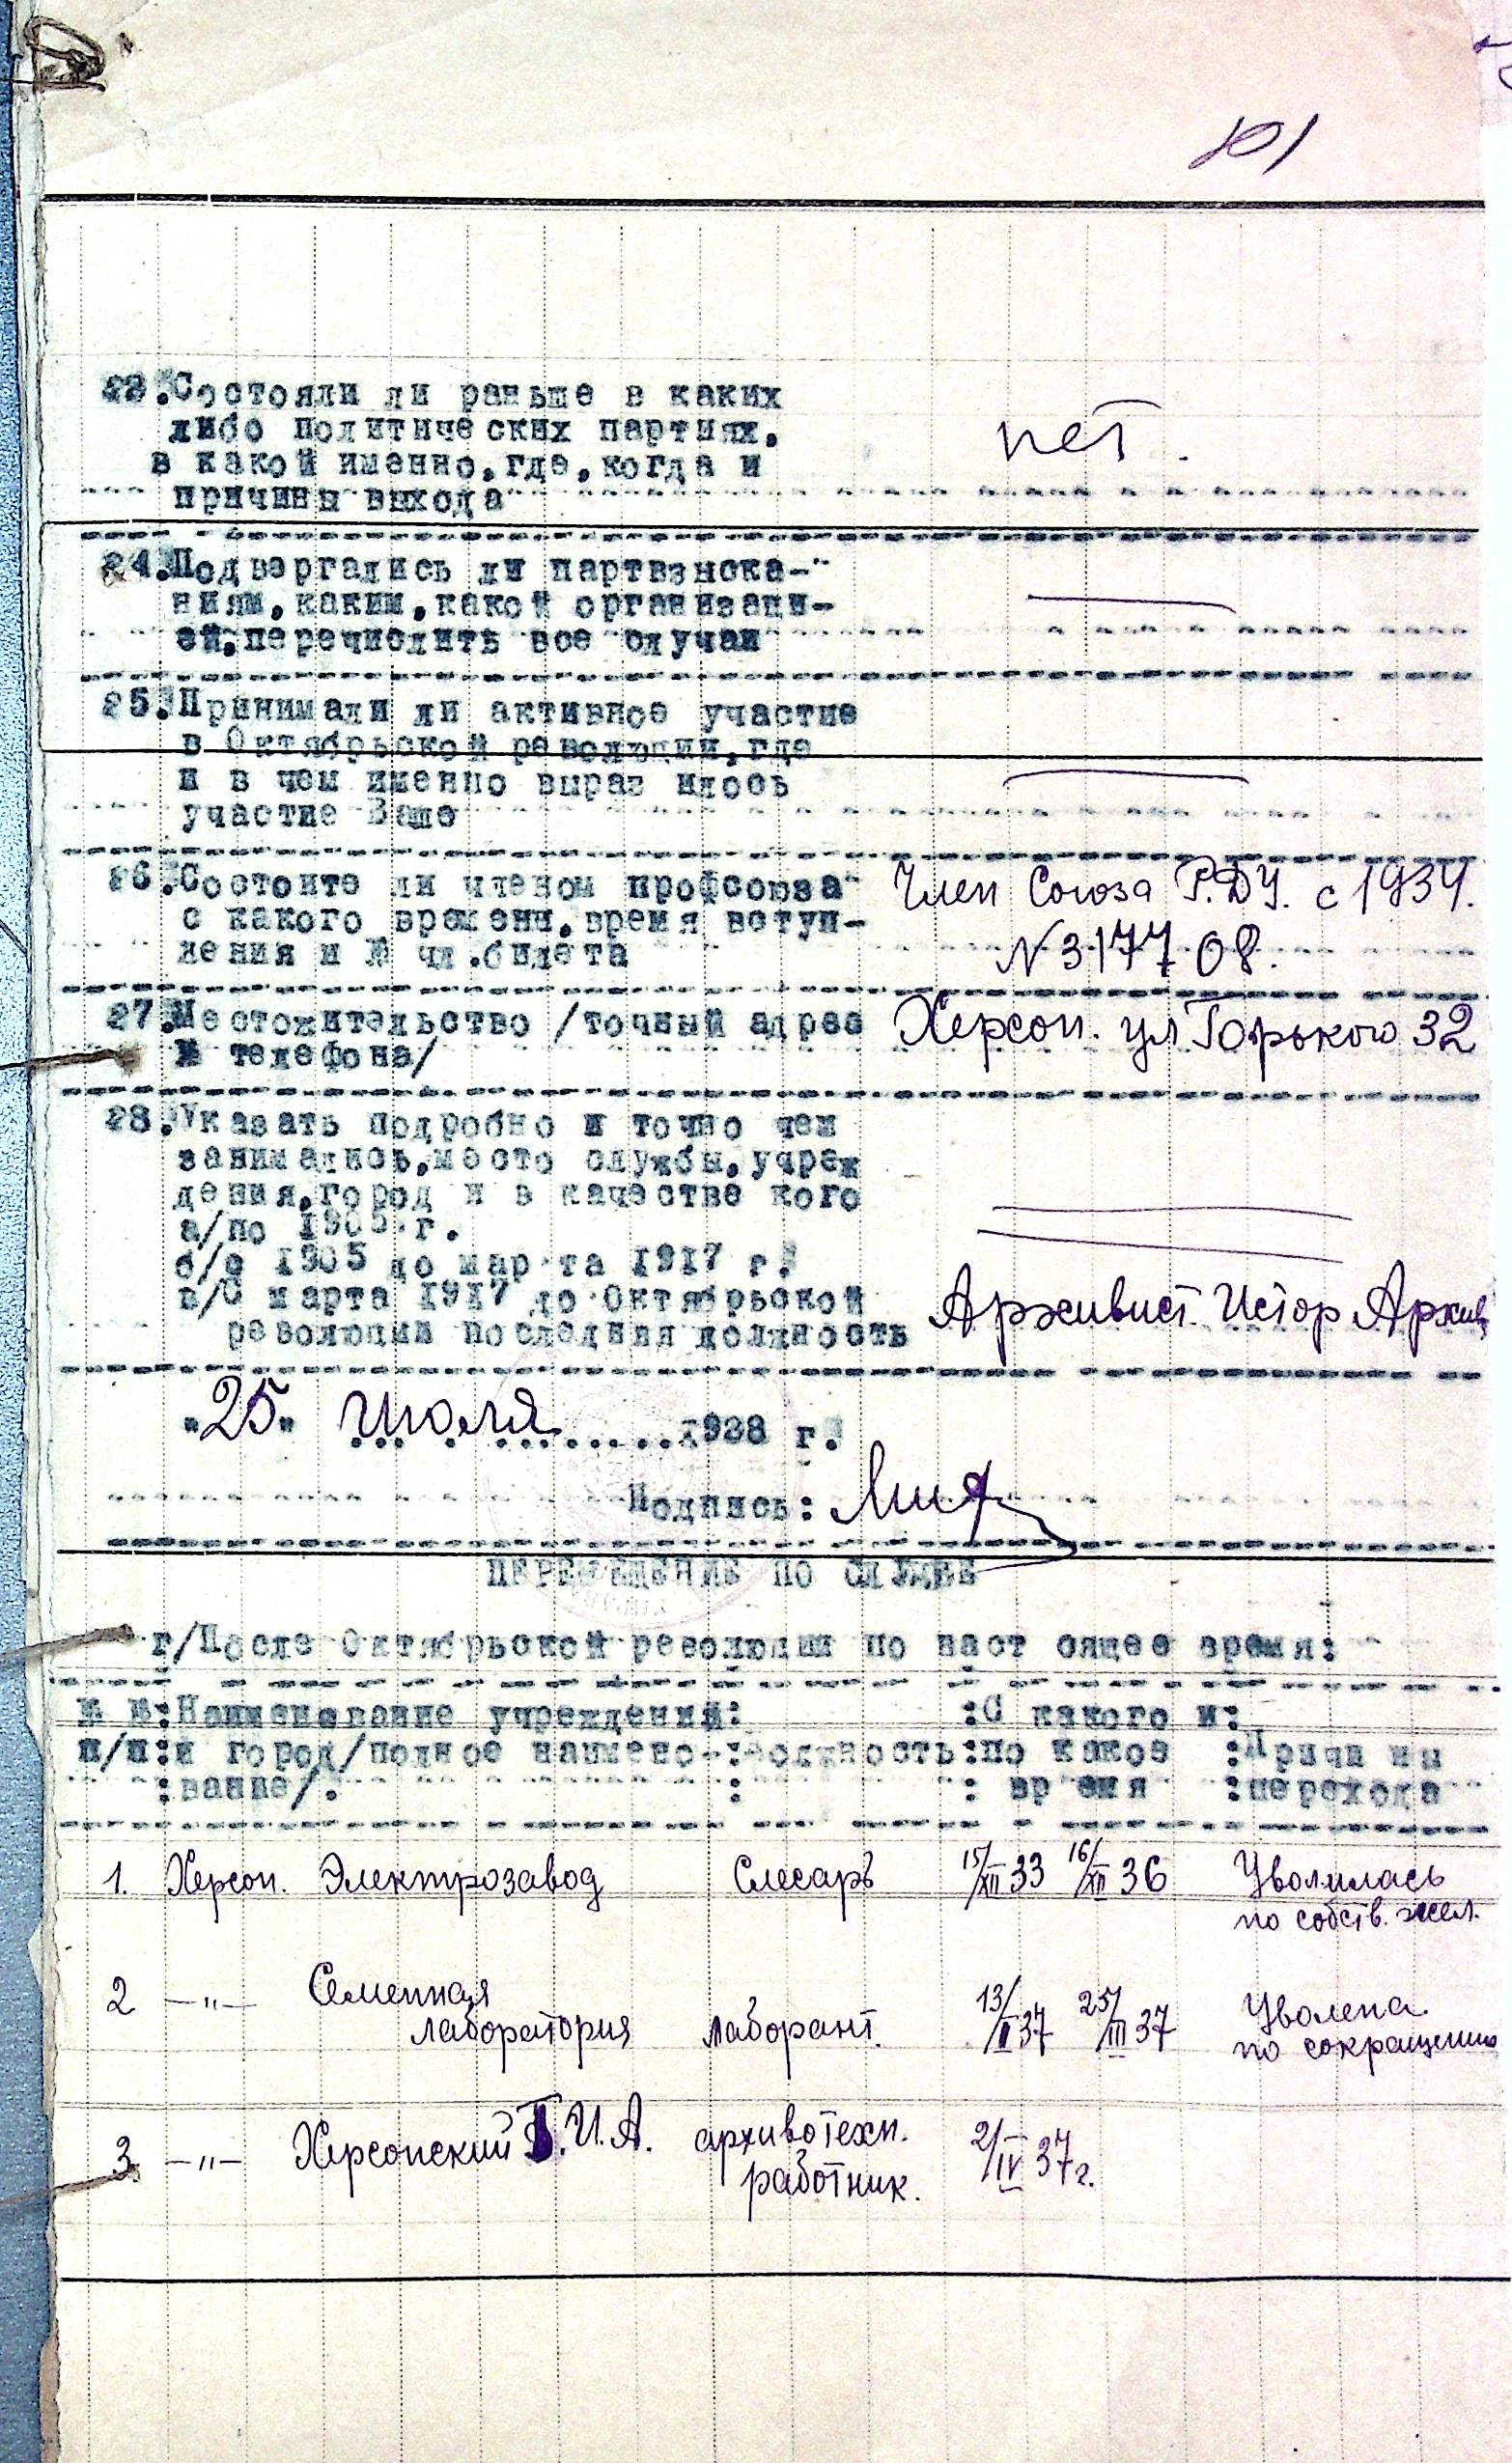 101
23. Состояли ли раньше в каких
либо политических партиях,
в какой именно, где, когда и
причины выхода
нет.
24. Подвергались ли партвзыска-
ниям, каким, какой организаци-
ей, перечислить все случаи
25. Принимали ли активное участие
в Октябрьской революции, где
и в чем именно выраз илось
участие Ваше
26. Состоите ли членом профсоюза
с какого времени, время вступ-
ления и № чл. билета
Член Союза Р.Д.У. с 1934.
N 317708.
27. Местожительство /точный адрес
№ телефона/
Херсон. ул Горького 32
28. Указать подробно и точно чем
занимались, место службы, учреж
дения, город и в качестве кого
а/по 1905 г.
б/с 1905 до марта 1917 г.
в/С марта 1917 до Октябрьской
революции последняя должность
Архивист. Истор Архив
"25" Июля 1938 г.
Подпись:
ПЕРЕМЕЩЕНИЕ ПО СЛУЖБЕ
г/После Октябрьской революции по наст оящее время:
№ №: Наименование учреждений: :С какого и:
п/п:и город/полное наимено-:должность:по какое :Причи ны
:вание/. : : вр емя :перехода
1. Херсон. Электрозавод Слесарь 15/XII 33 16/XII 36 Уволилась
по собств. жел.
2 —"— Семенная
лаборатория лаборант. 13/II 37 25/III 37 Уволена
по сокращению
3. —"— Херсонский Г.И.А. архивотехн.
работник. 2/IV 37г.